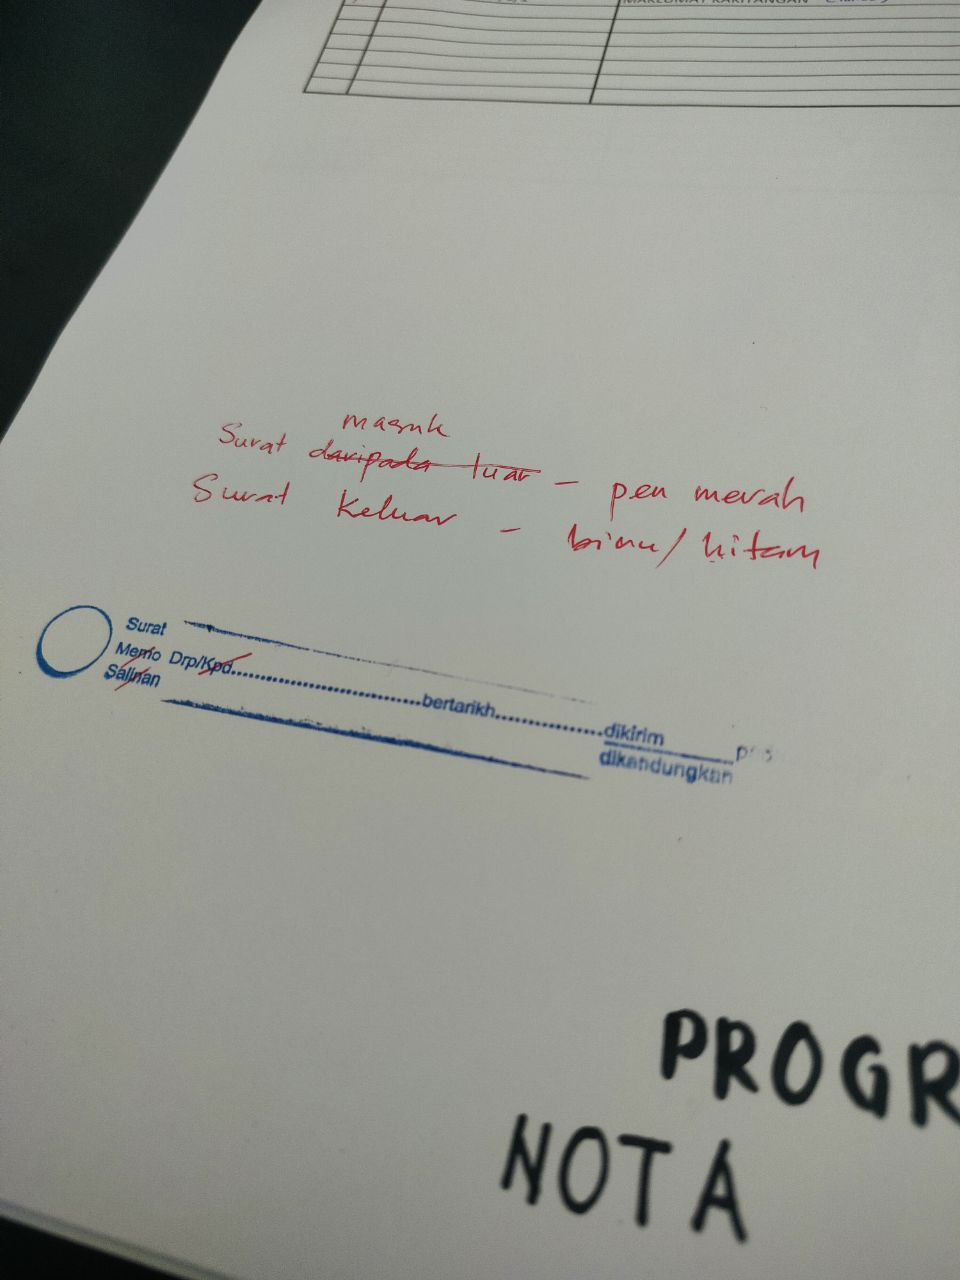 MAKLUMAT KAKITANGAN
masuk
Surat daripada luar - pen merah
Surat Keluar - biru/hitam
Surat
Memo Drp/Kpd..............................bertarikh.................dikirim
Salinan
dikandungkan
PROGR
NOTA